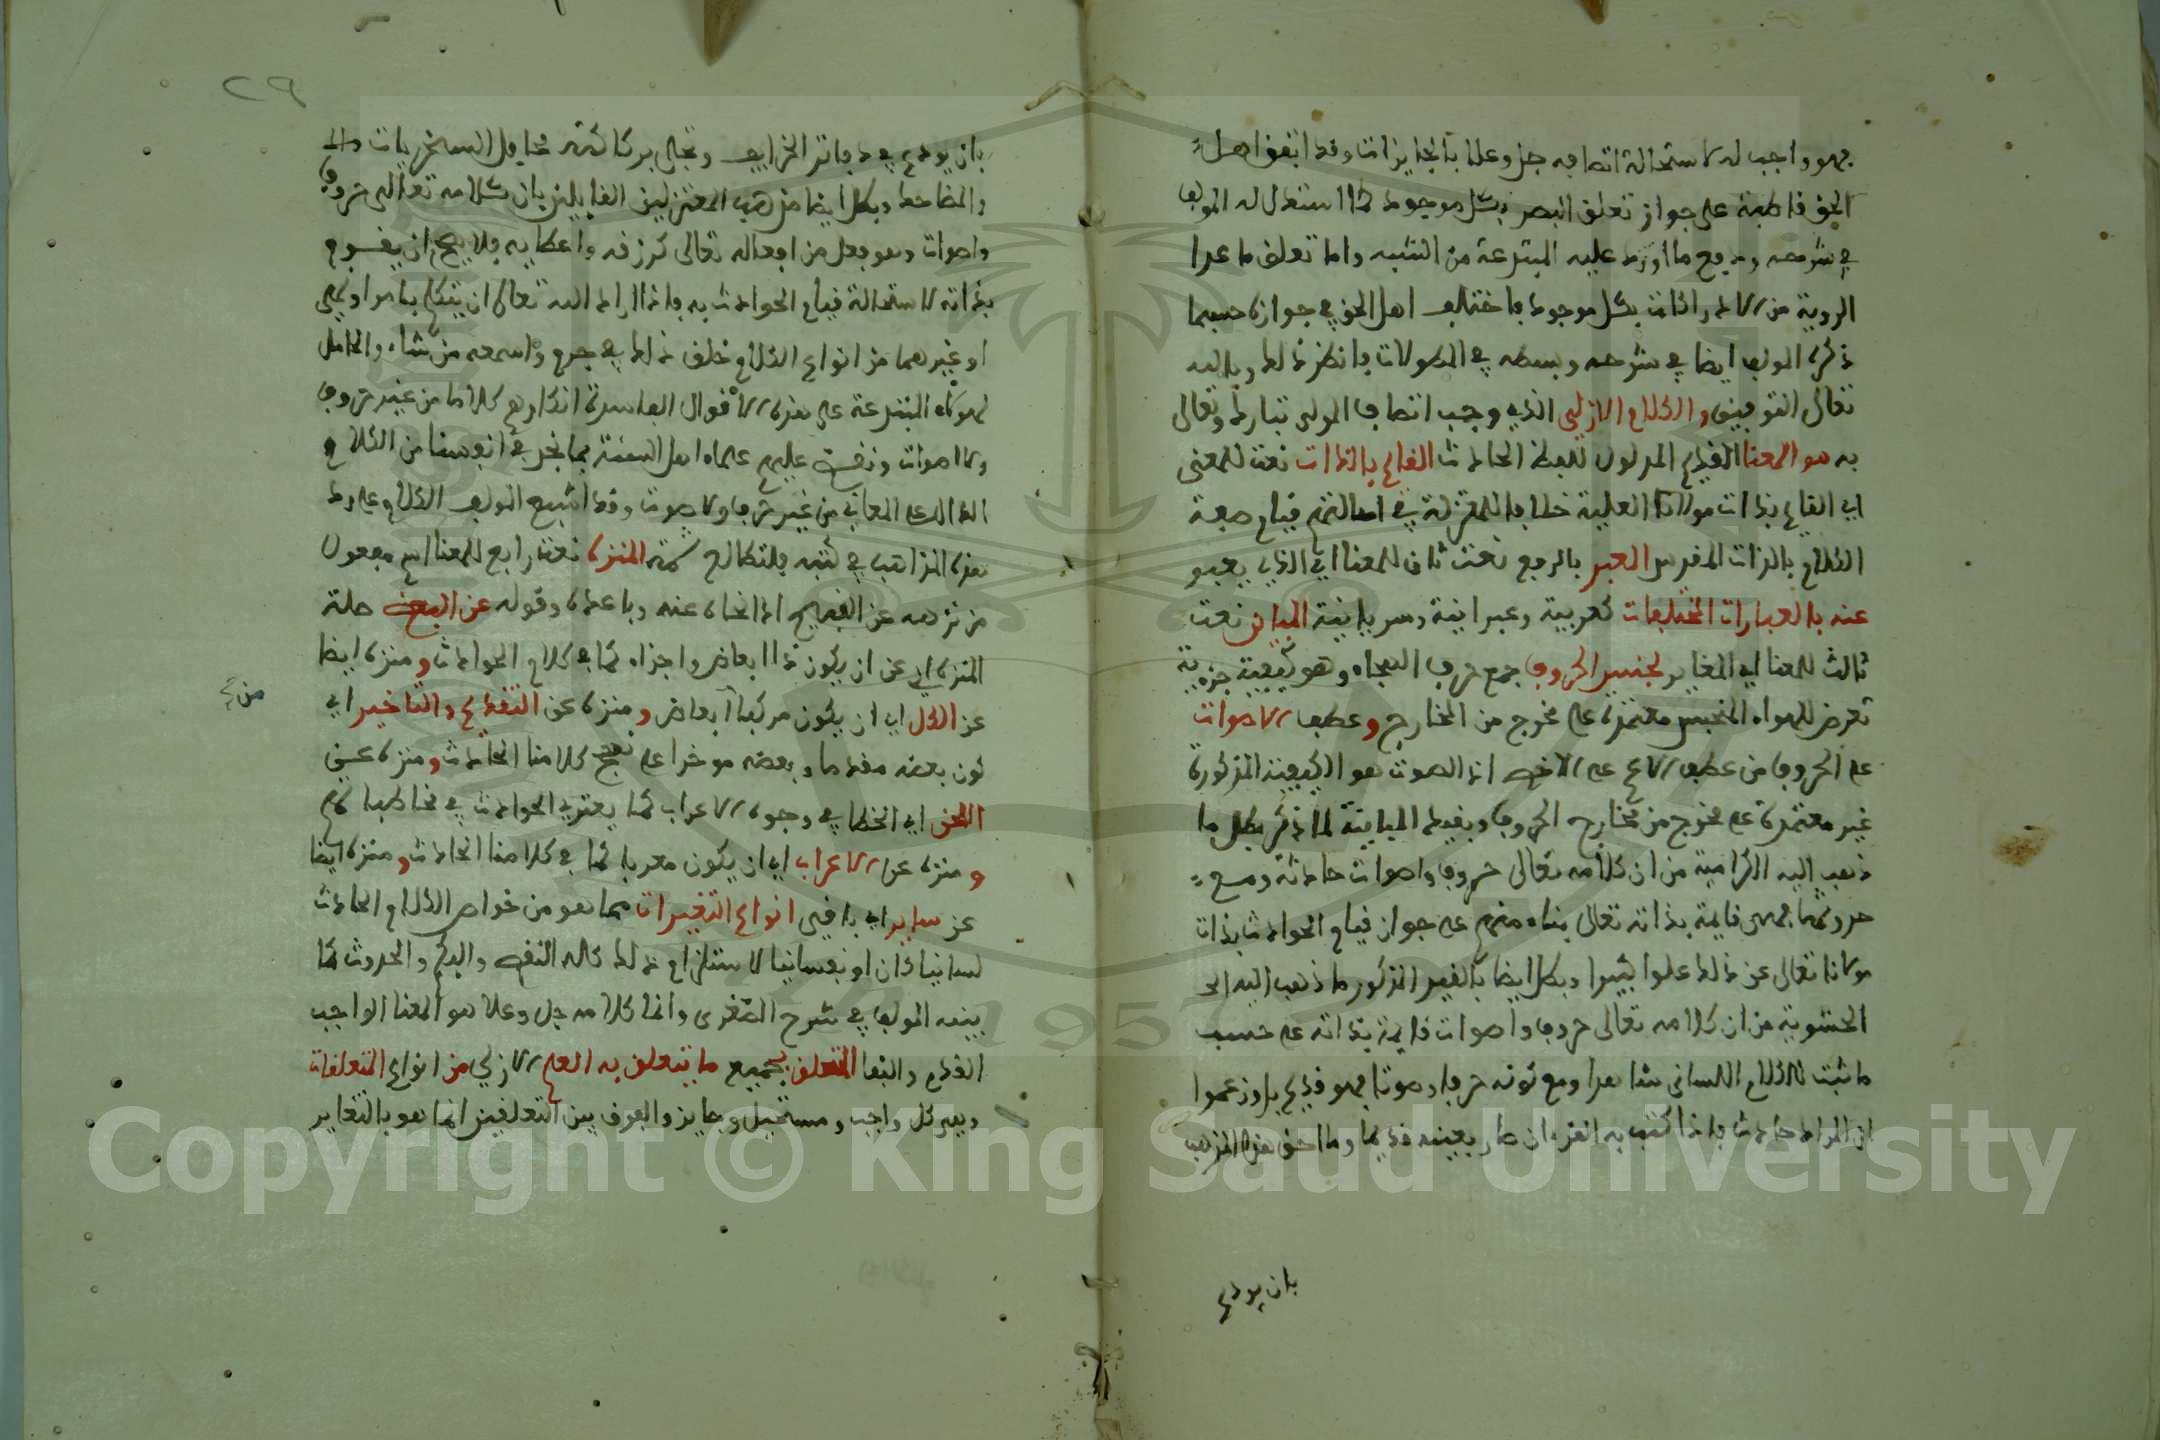 فهو واجب له لاستحالة اتصافه جل وعلا بالجايزات وقد اتفق اهل
الحق قاطبة على جواز تعلق البصر بكل موجود كما استدل له المولف
في شرحه ودفع ما اورد عليه المبتدعة من الشبه واما تعلق ما عدا
الروية من الادراكات بكل موجود فاختلف اهل الحق في جوازه حسبما
ذكره المولف ايضا في شرحه وبسطه في المطولات فانظر ذلك وبالله
تعالى التوفيق والكلام الازلي الذي وجب اتصاف المولى تبارك وتعالى
به هو المعنا القديم المدلول للفظ الحادث القايم بالذات نعت للمعنى
اي القايم بذات مولانا العلية خلافا للمعتزلة في احالتهم قيام صفة
الكلام بالذات المقدس المعبر بالرفع نعت ثان للمعنا اي الذي يعبر
عنه بالعبارات المختلفات كعربية وعبرانية وسريانية المباين نعت
ثالث للمعنا اي المغاير لجنس الحروف جمع حرف الهجاء وهو كيفية جزءية
تعرض للهواء المنحبس معتمدة على مخرج من المخارج وعطف الاصوات
على الحروف من عطف الاعم على الاخص اذ الصوت هو الكيفية المذكورة
غير معتمدة على مخرج من مخارج الحروف وبقيد المباينة لما ذكر بطل ما
ذهب اليه الكرامية من ان كلامه تعالى حروف واصوات حادثة ومع
حدوثها فهي قايمة بذاته تعالى بناء منهم على جواز قيام الحوادث بذات
مولانا تعالى عن ذلك علوا كبيرا وبطل ايضا بالقيد المذكور ما ذهب اليه
الحشوية من ان كلامه تعالى حروف واصوات قايمة بذاته على حسب
ما ثبت للكلام اللساني شاهدا ومع كونه حرفا وصوتا فهو قديم بل وزعموا
ان المداد حادث فاذا كتب به القرءان صار بعينه قديما وما احق هذا المذهب
بان يودع
٢٩
بان يودع في دفاتر الخرايف وتجلى بركاكته محافل السخريات
والمضاحك وبطل ايضا مذهب المعتزلين القايلين بان كلامه تعالى حروف
واصوات وهو فعل من افعاله تعالى كرزقه واعطايه فلا يصح ان يقوم
بذاته لاستحالة قيام الحوادث به فاذا اراد الله تعالى ان يتكلم بامر او نهي
او غيرهما من انواع الكلام خلق ذلك في جرم واسمعه من شاء والحامل
لهولاء المبتدعة على هذه الاقوال الفاسدة انكارهم كلاما من غير حروف
ولا اصوات ونقض عليهم علماء اهل السنة بما نجد في انفسنا من الكلام
الدال على المعاني من غير حرف ولا صوت وقد اشبع المولف الكلام على رد
هذه المذاهب في كتبه فلتطالع ثمة المنزه نعت رابع للمعنا اسم مفعول
من نزهه عن القبيح اذا نحاه عنه وباعده وقوله عن البعض صلة
المنزه اي عن ان يكون ذا ابعاض واجزاء كما في كلام الحوادث ومنزه ايضا
عن الكل اي ان يكون مركبا ابعاض ومنزه عن التقديم والتاخير اي
من
كون بعضه مقدما وبعضه موخرا على بعض كلامنا الحادث ومنزه عن
اللحن اي الخطا في وجوه الاعراب كما يعتري الحوادث في مخاطباتهم
ومنزه عن الاعراب اي ان يكون معربا كما في كلامنا الحادث ومنزه ايضا
عن ساير اي باقي انواع التغيرات مما هو من خواص الكلام الحادث
لسانيا كان او نفسانيا لاستلزام ذلك كله النقص والبكم والحدوث كما
بينه المولف في شرح الصغرى وانما كلامه جل وعلا هو المعنا الواجب
القدم والبقا المتعلق بجميع ما يتعلق به العلم الازلي من انواع المتعلقات
وهي كل واجب ومستحيل وجايز والفرق بين التعلقين انما هو بالتغاير